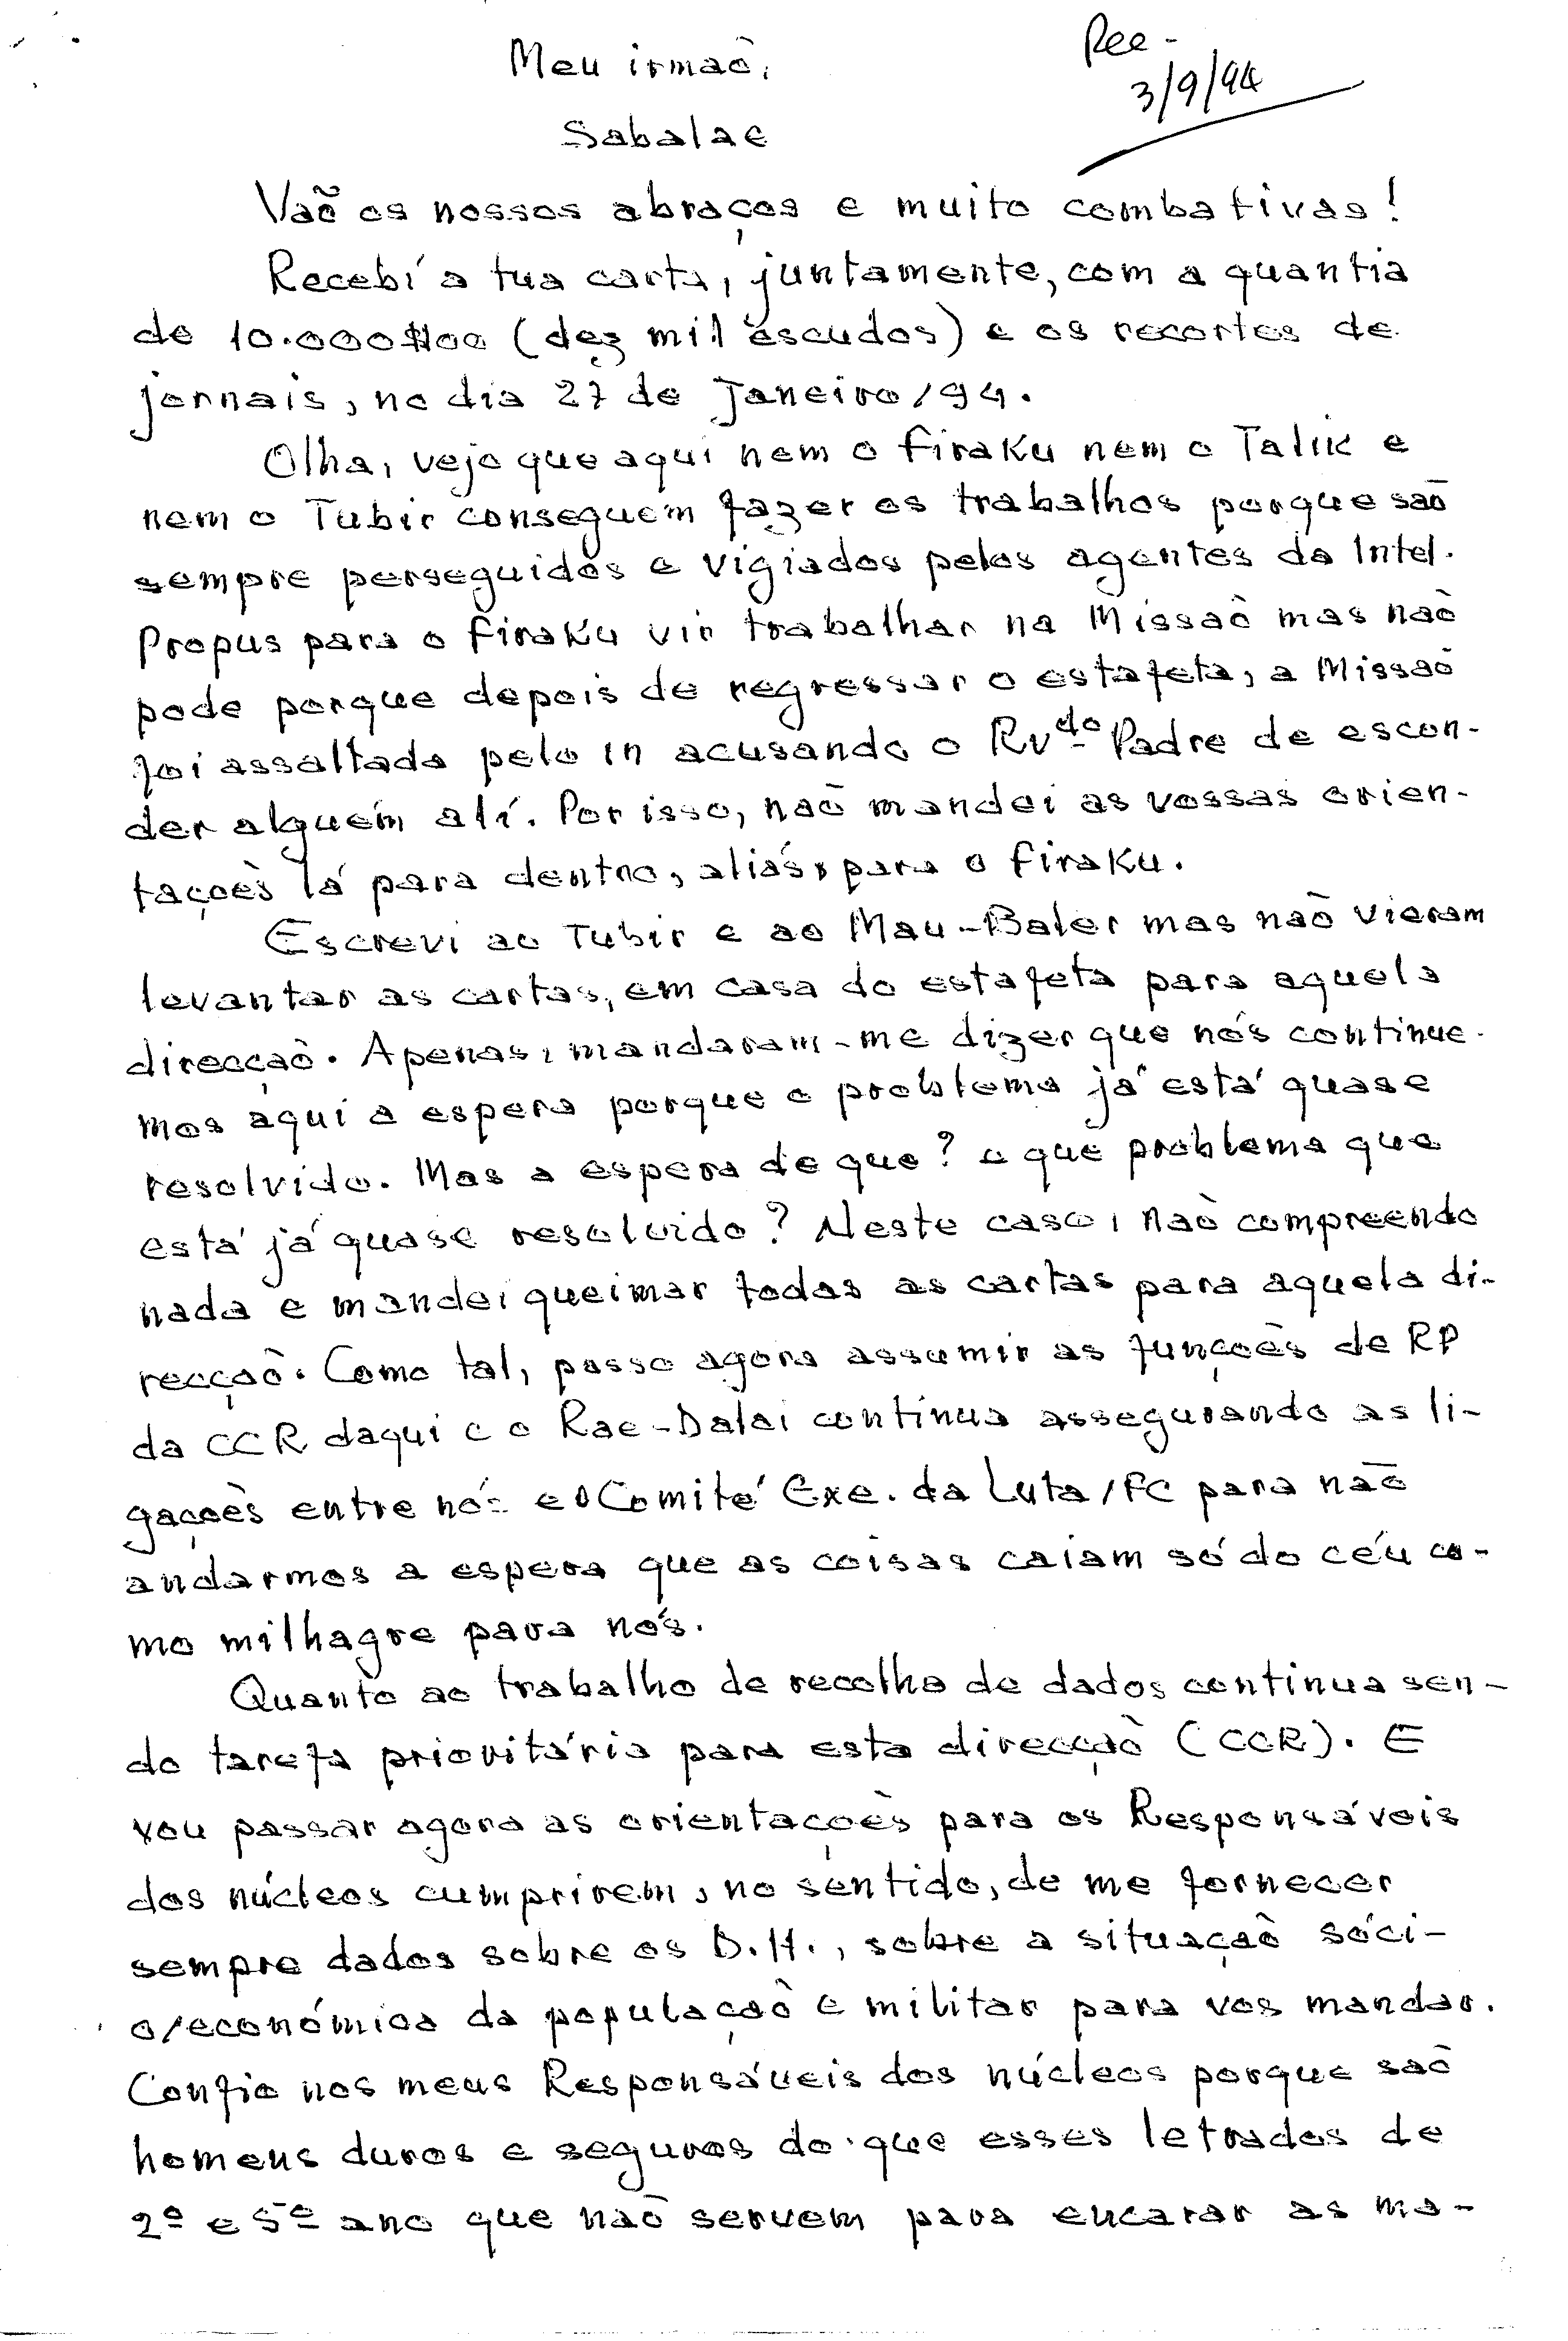 Meu irmaõ,
Rec-
3/9/94
Sabalae
Vaõ os nossos abraços e muito combativas!
Recebí a tua carta, juntamente, com a quantia
de 10.000$00 (dez mil escudos) e os recortes de
jornais, no dia 27 de Janeiro/94.
Olha, vejo que aqui nem o Firaku nem o Talik e
nem o Tubir conseguem fazer os trabalhos porque saõ
sempre perseguidos e vigiados pelos agentes da Intel.
Propus para o Firaku vir trabalhar na Missaõ mas naõ
pode porque depois de regressar o estafeta, a Missaõ
foi assaltada pelo in acusando o Rvdo Padre de escon-
der alguém alí. Por isso, naõ mandei as vossas orien-
taçoẽs lá para dentro, aliás, para o Firaku.
Escrevi ao Tubir e ao Mau-Baler mas naõ vieram
levantar as cartas, em casa do estafeta para aquela
direcçaõ. Apenas, mandaram-me dizer que nós continue-
mos aqui a espera porque o problema já está quase
resolvido. Mas a espera de que? e que problema que
está já quase resolvido? Neste caso, naõ compreendo
nada e mandei queimar todas as cartas para aquela di-
recçaõ. Como tal, passo agora assumir as funçoẽs de RP
da CCR daqui e o Rae-Dalai continua assegurando as li-
gaçoẽs entre nós e o Comité Exe. da Luta/FC para naõ
andarmos a espera que as coisas caiam só do céu co-
mo milhagre para nós.
Quanto ao trabalho de recolha de dados continua sen-
do tarefa prioritária para esta direcçaõ (CCR). E
vou passar agora as orientaçoẽs para os Responsáveis
dos núcleos cumprirem, no sentido, de me fornecer
sempre dados sobre os D.H., sobre a situaçaõ sóci-
o/económica da populaçaõ e militar para vos mandar.
Confio nos meus Responsáveis dos núcleos porque saõ
homens duros e seguros do que esses letrados de
2º e 5º ano que naõ servem para encarar as ma-